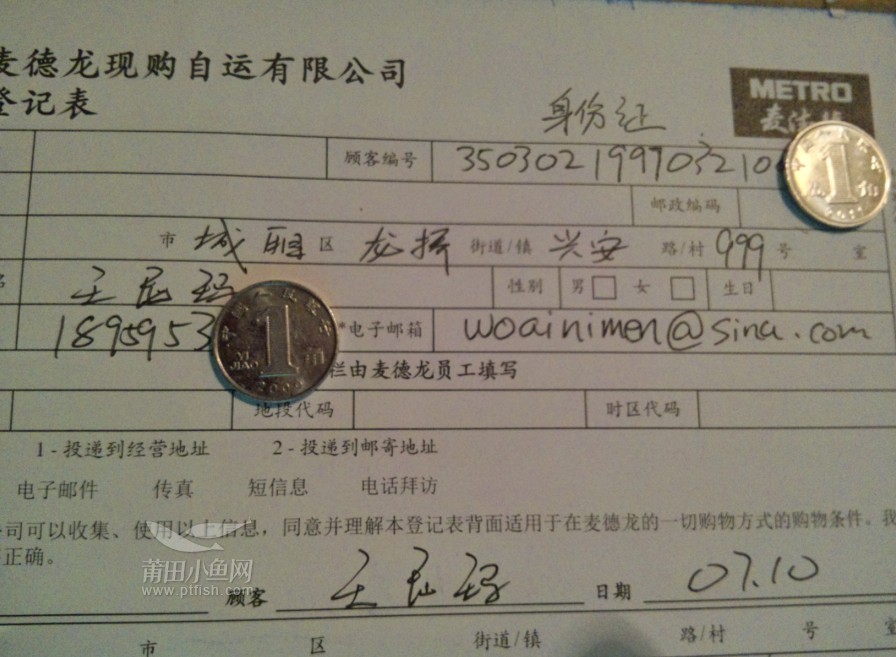 麦德龙现购自运有限公司
登记表
METRO
麦德龙
身份证
顾客编号 350302199703210
邮政编码
市 城厢 区 龙桥 街道/镇 兴安 路/村 999 号 室
王 性别 男 □ 女 □ 生日
1895953 *电子邮箱 woainimen@sina.com
栏由麦德龙员工填写
地投代码 时区代码
1 - 投递到经营地址 2 - 投递到邮寄地址
电子邮件 传真 短信息 电话拜访
公司可以收集、使用以上信息，同意并理解本登记表背面适用于在麦德龙的一切购物方式的购物条件。我
正确。
莆田小鱼网
www.ptfish.com
顾客 王 日期 07.10
市 区 街道/镇 路/村 号 室
1 YI JIAO 角 2002
1 角